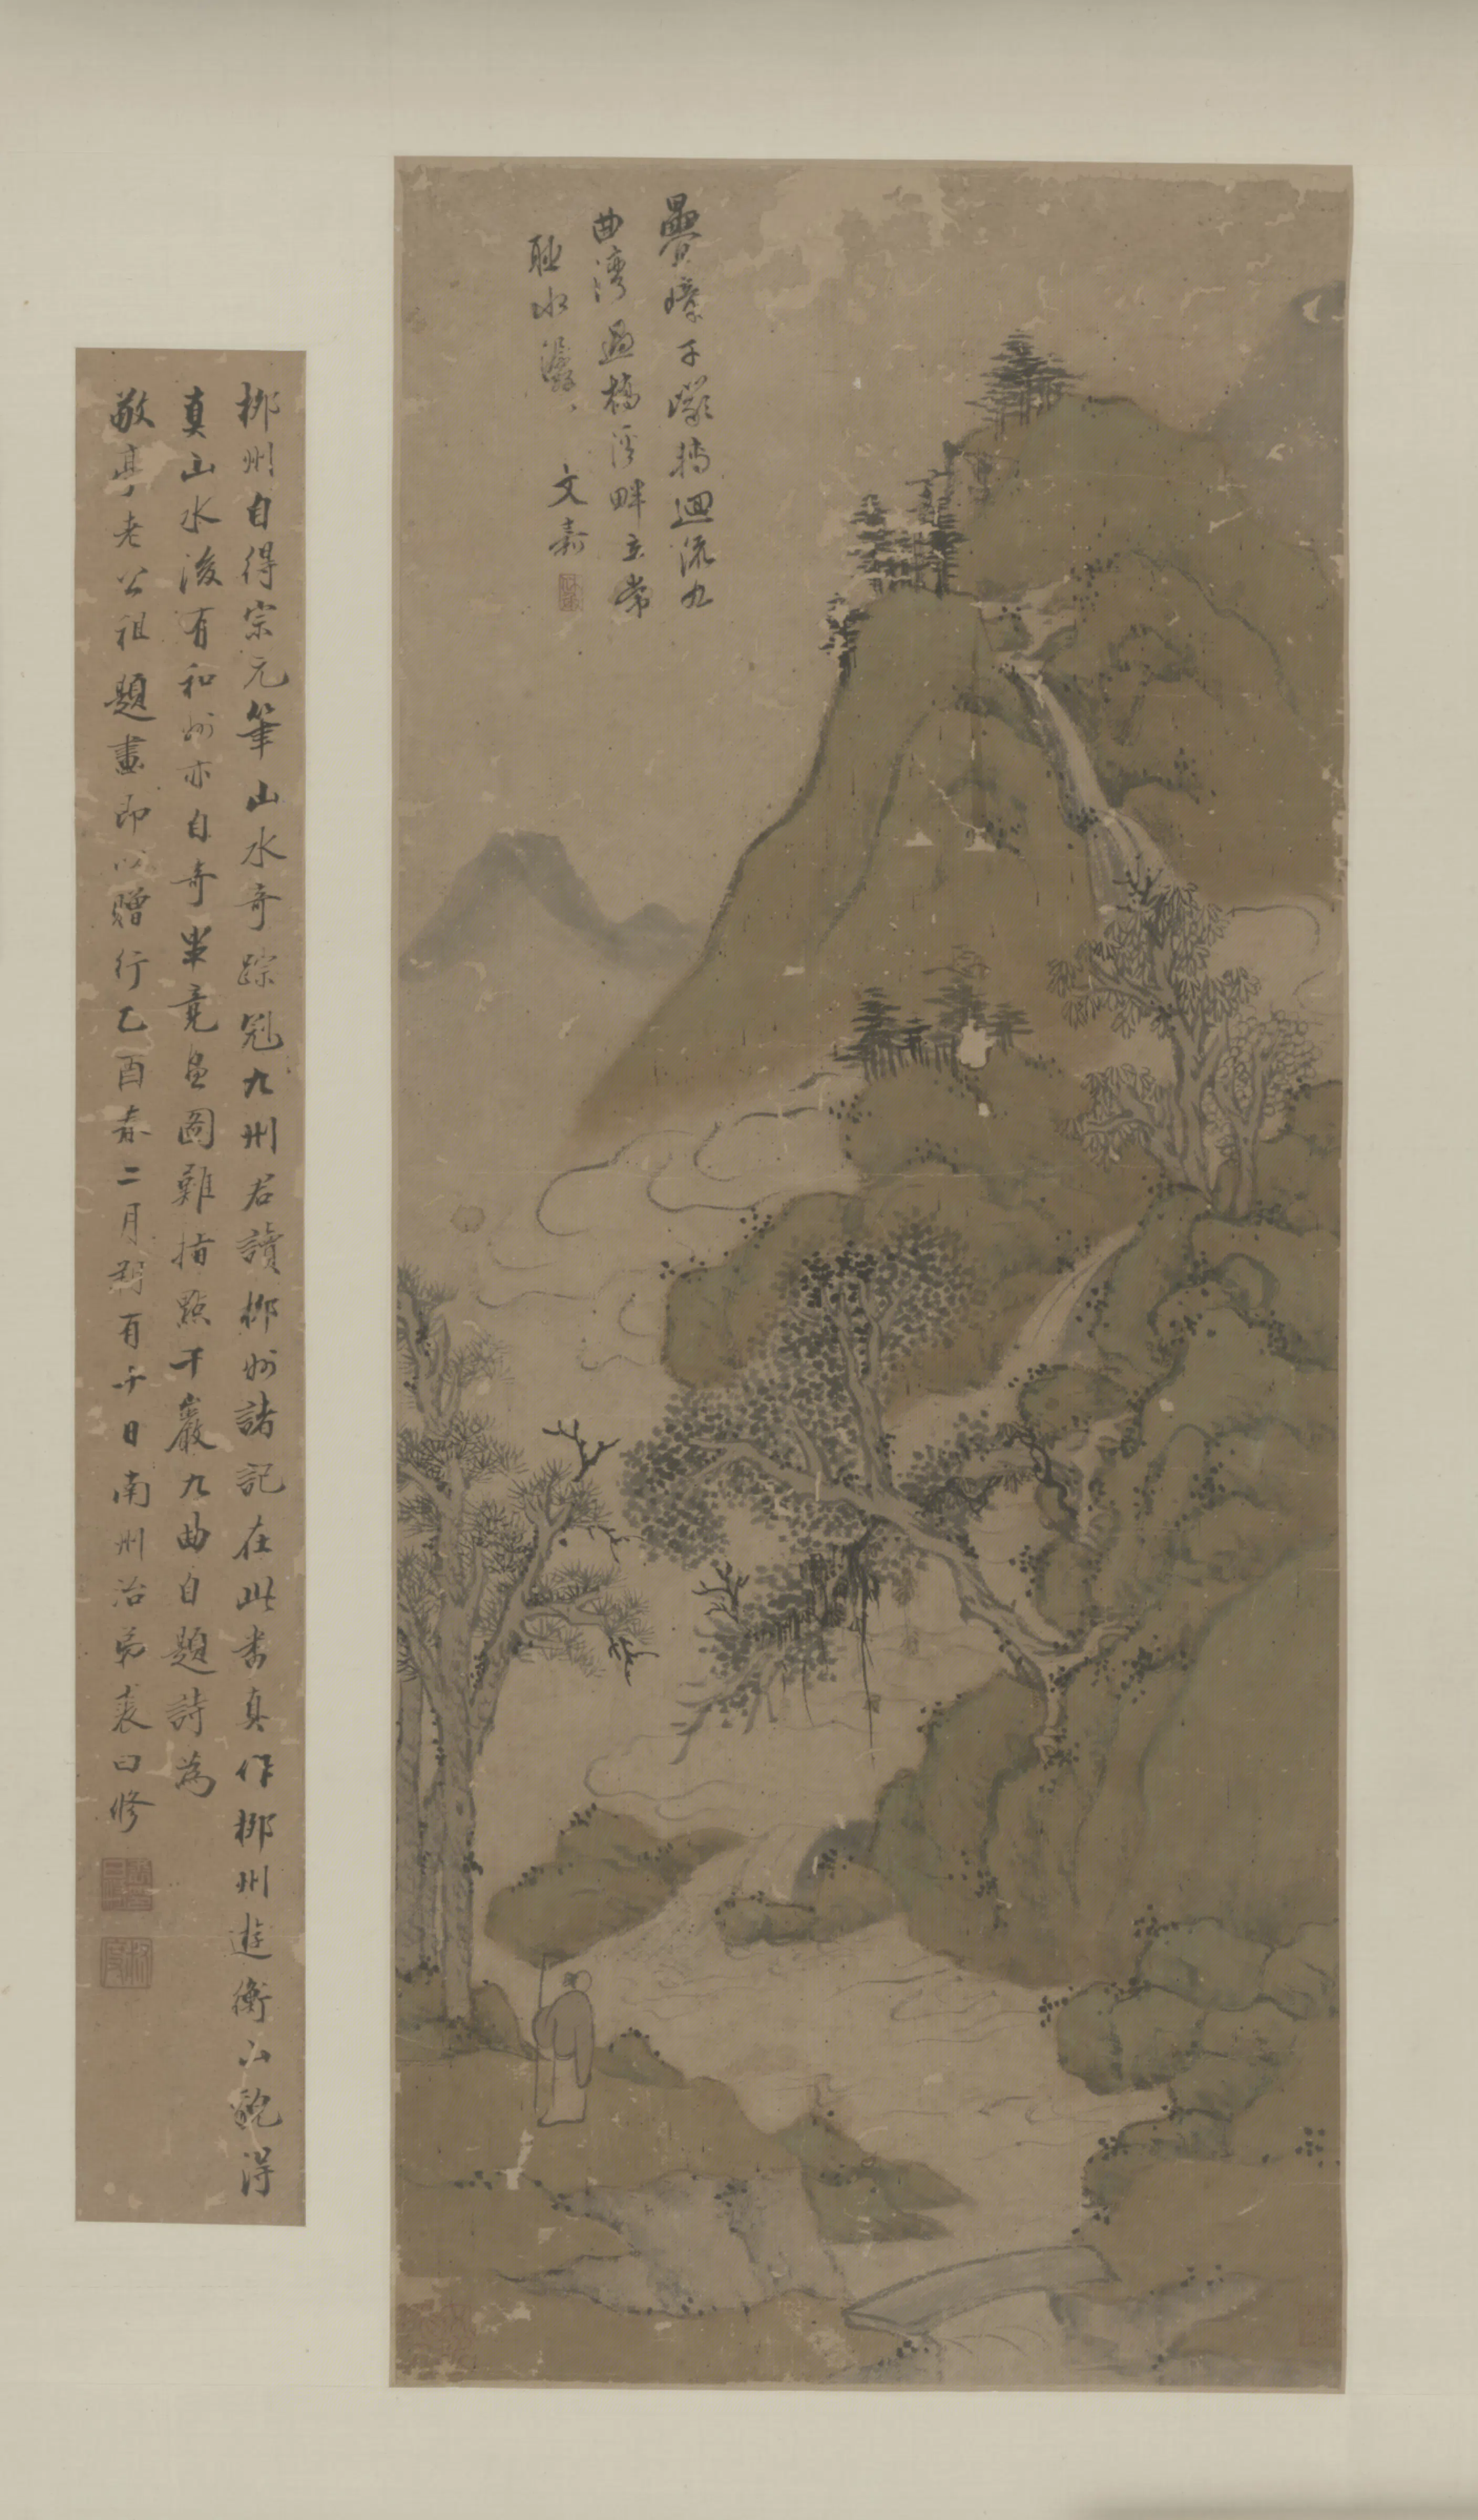 疊嶂千巖擁迴流九
曲灣過橋溪畔立常
聽水潺〻
文嘉
柳州自得宗元筆山水奇蹤冠九州君讀柳州諸記在此圖真作柳州遊衡山說得
真山水後有和州亦自奇畢竟畫圖難指點千巖九曲自題詩為
敬亭老公祖題畫即以贈行乙酉春二月朔有午日南州治弟裘曰修